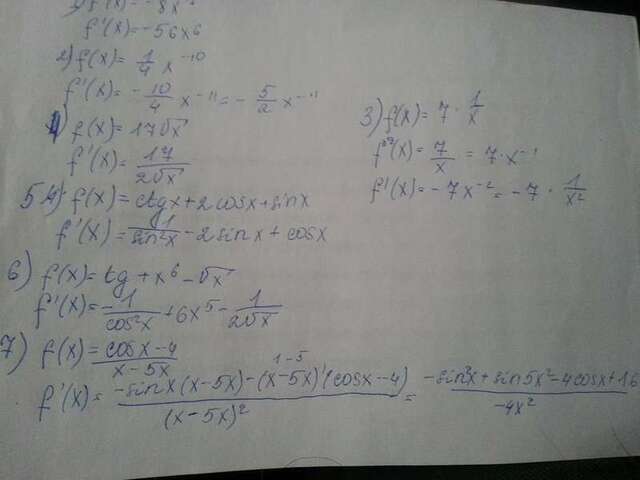 f(x) = -8x
f'(x) = -56x⁶
2) f(x) = 1/4 x⁻¹⁰
f'(x) = -10/4 x⁻¹¹ = -5/2 x⁻¹¹
4) f(x) = 17√x
f'(x) = 17/2√x
3) f(x) = 7 · 1/x
f(x) = 7/x = 7·x⁻¹
f'(x) = -7x⁻² = -7 · 1/x²
5) f(x) = ctgx + 2cosx + sinx
f'(x) = 1/sin²x - 2sinx + cosx
6) f(x) = tg + x⁶ - √x
f'(x) = -1/cos²x + 6x⁵ - 1/2√x
7) f(x) = cosx-4/x-5x
1-5
f'(x) = -sinx(x-5x)-(x-5x)'(cosx-4)/(x-5x)² = -sin²x+sin5x²-4cosx+16/-4x²